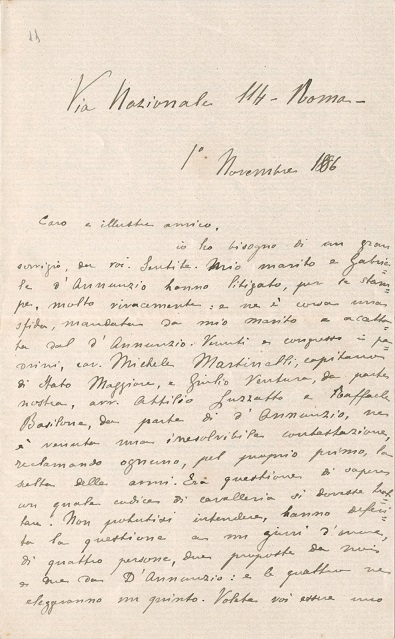 11
Via Nazionale 114 - Roma -
1° Novembre 1886
Caro e illustre amico,
io ho bisogno di un gran
servizio, da voi. Sentite. Mio marito e Gabrie-
le d'Annunzio hanno litigato, per la stam-
pa, molto vivacemente: e ne è corsa una
sfida, mandata da mio marito e accetta-
ta dal d'Annunzio. Venuti a congresso i pa-
drini, cav. Michele Martinelli, capitano
di Stato Maggiore, e Giulio Ventura, da parte
nostra, avv. Attilio Luzzatto e Raffaele
Basilone, da parte di d'Annunzio, ne
è venuta una irresolvibile contestazione,
reclamando ognuno, pel proprio primo, la
scelta delle armi. Era questione di sapere
con quale codice di cavalleria si dovesse trat-
tare. Non potutisi intendere, hanno deferi-
ta la questione a un giurì d'onore,
di quattro persone, due proposte da noi
e due da D'Annunzio: e le quattro ne
eleggeranno un quinto. Volete voi essere uno